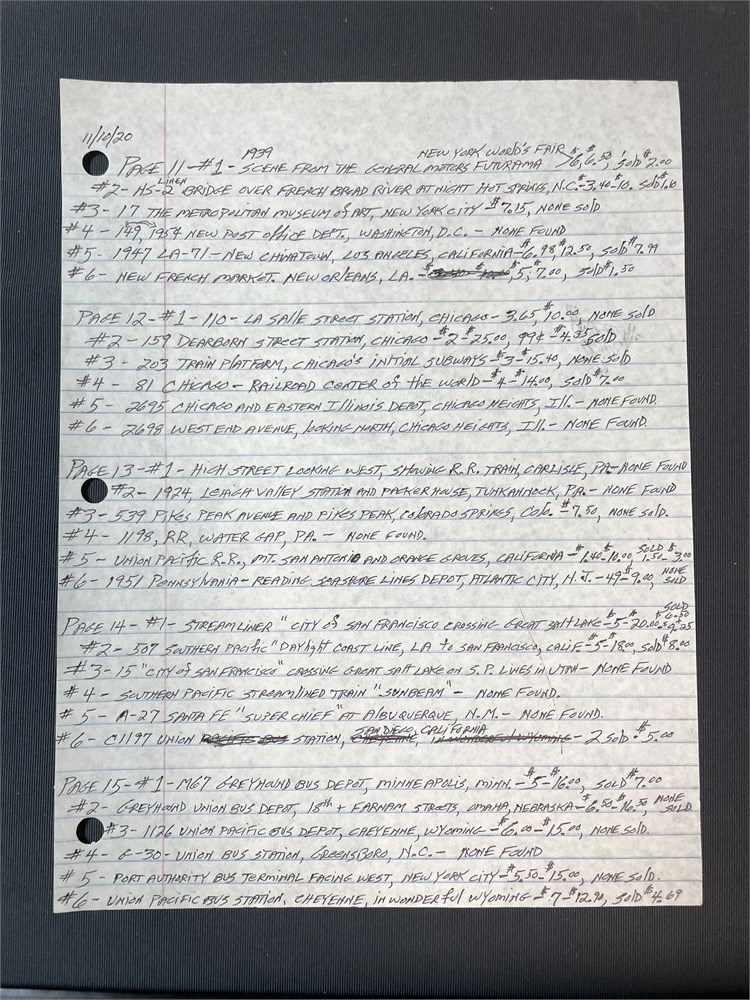 11/10/20
1939 NEW YORK WORLD'S FAIR
PAGE 11-#1- SCENE FROM THE GENERAL MOTORS FUTURAMA $6, $6.50, SOLD $2.00
#2- HS-2 LINEN BRIDGE OVER FRENCH BROAD RIVER AT NIGHT HOT SPRINGS, N.C.-3.40-$10. SOLD
#3- 17 THE METROPOLITAN MUSEUM of ART, NEW YORK CITY-$7.15, NONE SOLD
#4- 149, 1954 NEW POST OFFICE DEPT., WASHINGTON, D.C. - NONE FOUND
#5- 1947 LA-71- NEW CHINATOWN, LOS ANGELES, CALIFORNIA-$6.98, $12.50, SOLD $7.99
#6- NEW FRENCH MARKET. NEW ORLEANS, LA.- $5, $7.00, SOLD $1.50
PAGE 12-#1-110- LA SALLE STREET STATION, CHICAGO- 3.65 $10.00, NONE SOLD
#2-159 DEARBORN STREET STATION, CHICAGO-$2-$25.00, 99¢-$4.35 SOLD
#3- 203 TRAIN PLATFORM, CHICAGO'S INITIAL SUBWAYS-$3-15.40, NONE SOLD
#4- 81 CHICAGO- RAILROAD CENTER of THE WORLD-$4-$14.00, SOLD $7.00
#5- 2695 CHICAGO AND EASTERN ILLINOIS DEPOT, CHICAGO HEIGHTS, ILL.- NONE FOUND.
#6- 2698 WEST END AVENUE, LOOKING NORTH, CHICAGO HEIGHTS, ILL.- NONE FOUND.
PAGE 13-#1- HIGH STREET LOOKING WEST, SHOWING R.R. TRAIN, CARLISLE, PA-NONE FOUND
#2- 1924 LEHIGH VALLEY STATION AND PACKER HOUSE, TUNKANNOCK, PA.- NONE FOUND
#3- 539 PIKES PEAK AVENUE AND PIKES PEAK, COLORADO SPRINGS, COLO.-$7.50, NONE SOLD.
#4- 1198, RR, WATER GAP, PA.- NONE FOUND.
#5- UNION PACIFIC R.R., MT. SAN ANTONIO AND ORANGE GROVES, CALIFORNIA-$1.40-$10.00, SOLD 1.50-$3.00
#6- 1951 PENNSYLVANIA- READING SEASHORE LINES DEPOT, ATLANTIC CITY, N.J.-49-$9.00, NONE SOLD
PAGE 14-#1- STREAMLINER "CITY OF SAN FRANCISCO CROSSING GREAT SALT LAKE-$5-$20.00, SOLD
#2- 507 SOUTHERN PACIFIC "DAYLIGHT COAST LINE, LA TO SAN FRANCISCO, CALIF-$5-$18.00, SOLD $8.00
#3-15 "CITY OF SAN FRANCISCO" CROSSING GREAT SALT LAKE ON S.P. LINES IN UTAH- NONE FOUND
#4- SOUTHERN PACIFIC STREAMLINED TRAIN "SUNBEAM"- NONE FOUND.
#5- A-27 SANTA FE "SUPER CHIEF" AT ALBUQUERQUE, N.M.- NONE FOUND.
#6- C1197 UNION PACIFIC BUS STATION, SAN DIEGO, CALIFORNIA CHEYENNE, IN WONDERFUL WYOMING- 2 SOLD $5.00
PAGE 15-#1-M67 GREYHOUND BUS DEPOT, MINNEAPOLIS, MINN.-$5-$16.00, SOLD $7.00
#2- GREYHOUND UNION BUS DEPOT, 18th + FARNAM STREETS, OMAHA, NEBRASKA-$6.50-$16.50, NONE SOLD
#3- 1126 UNION PACIFIC BUS DEPOT, CHEYENNE, WYOMING-$6.00-$15.00, NONE SOLD.
#4- G-30- UNION BUS STATION, GREENSBORO, N.C.- NONE FOUND
#5- PORT AUTHORITY BUS TERMINAL FACING WEST, NEW YORK CITY-$5.50-$15.00, NONE SOLD.
#6- UNION PACIFIC BUS STATION, CHEYENNE, IN WONDERFUL WYOMING-$7-$12.90, SOLD $4.69